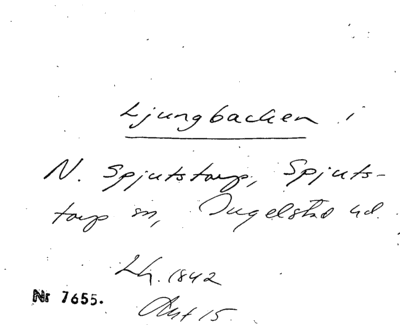 Ljungbacken i
N. Spjutstorp, Spjuts-
torp sn, Ingelstad hd.
Lh. 1842
Akt 15
Nr 7655.